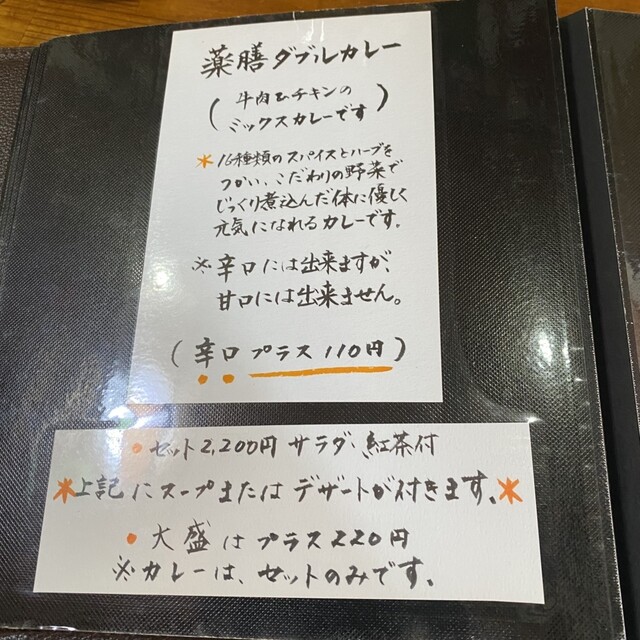 薬膳ダブルカレー
(牛肉&チキンの
ミックスカレーです)
*16種類のスパイスとハーブを
つかい、こだわりの野菜で
じっくり煮込んだ体に優しく
元気になれるカレーです。
※辛口には出来ますが、
甘口には出来ません。
(辛口プラス110円)
・セット2,200円 サラダ・紅茶付
*上記にスープまたはデザートが付きます。*
・大盛はプラス220円
※カレーは、セットのみです。